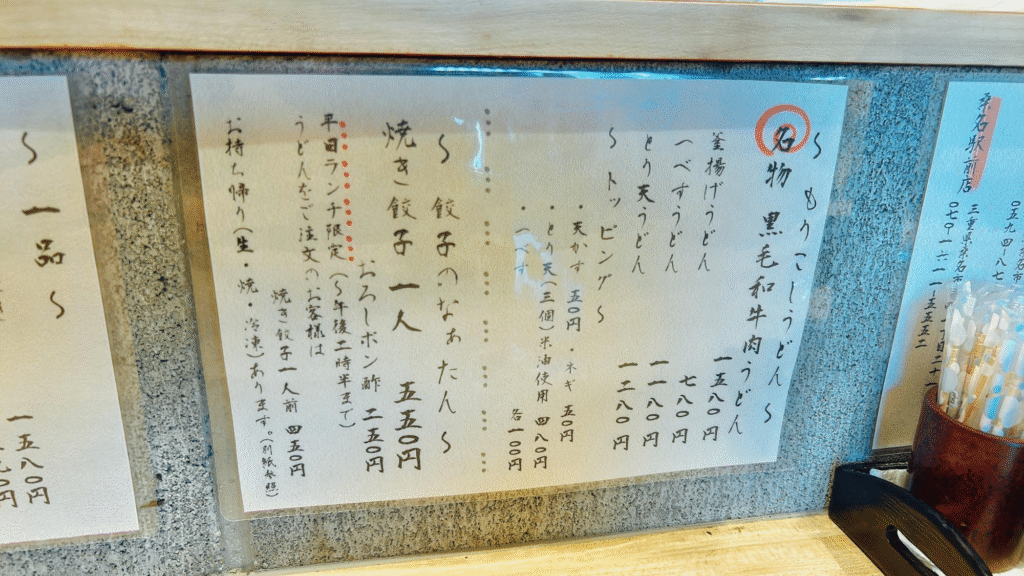 桑名駅前店
三重県桑名市
〜 もりこしうどん 〜
名物 黒毛和牛肉うどん
一五八〇円
釜揚げうどん 七八〇円
へべすうどん 一一八〇円
とり天うどん 一二八〇円
〜 トッピング 〜
・天かす 五〇円 ・ネギ 五〇円
・とり天(三個)米油使用 四八〇円
・へべす 各一〇〇円
〜 餃子のなぁたん 〜
焼き餃子 一人 五五〇円
おろしポン酢 二五〇円
平日ランチ限定(〜午後二時半まで)
うどんをご注文のお客様は
焼き餃子 一人前 四五〇円
お持ち帰り(生・焼・冷凍)あります。(別紙参照)
〜 一品 〜
一五八〇円